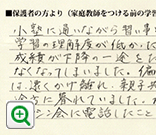 ■保護者の方より（家庭教師をつける前の学習
小塾に通いながら習い事
学習の理解度が低かった
成績が下降の一途をた
なくなってしまいました。偏
は遠くかけ離れ、親子共
途方に暮れていました。
ン会に電話したこと